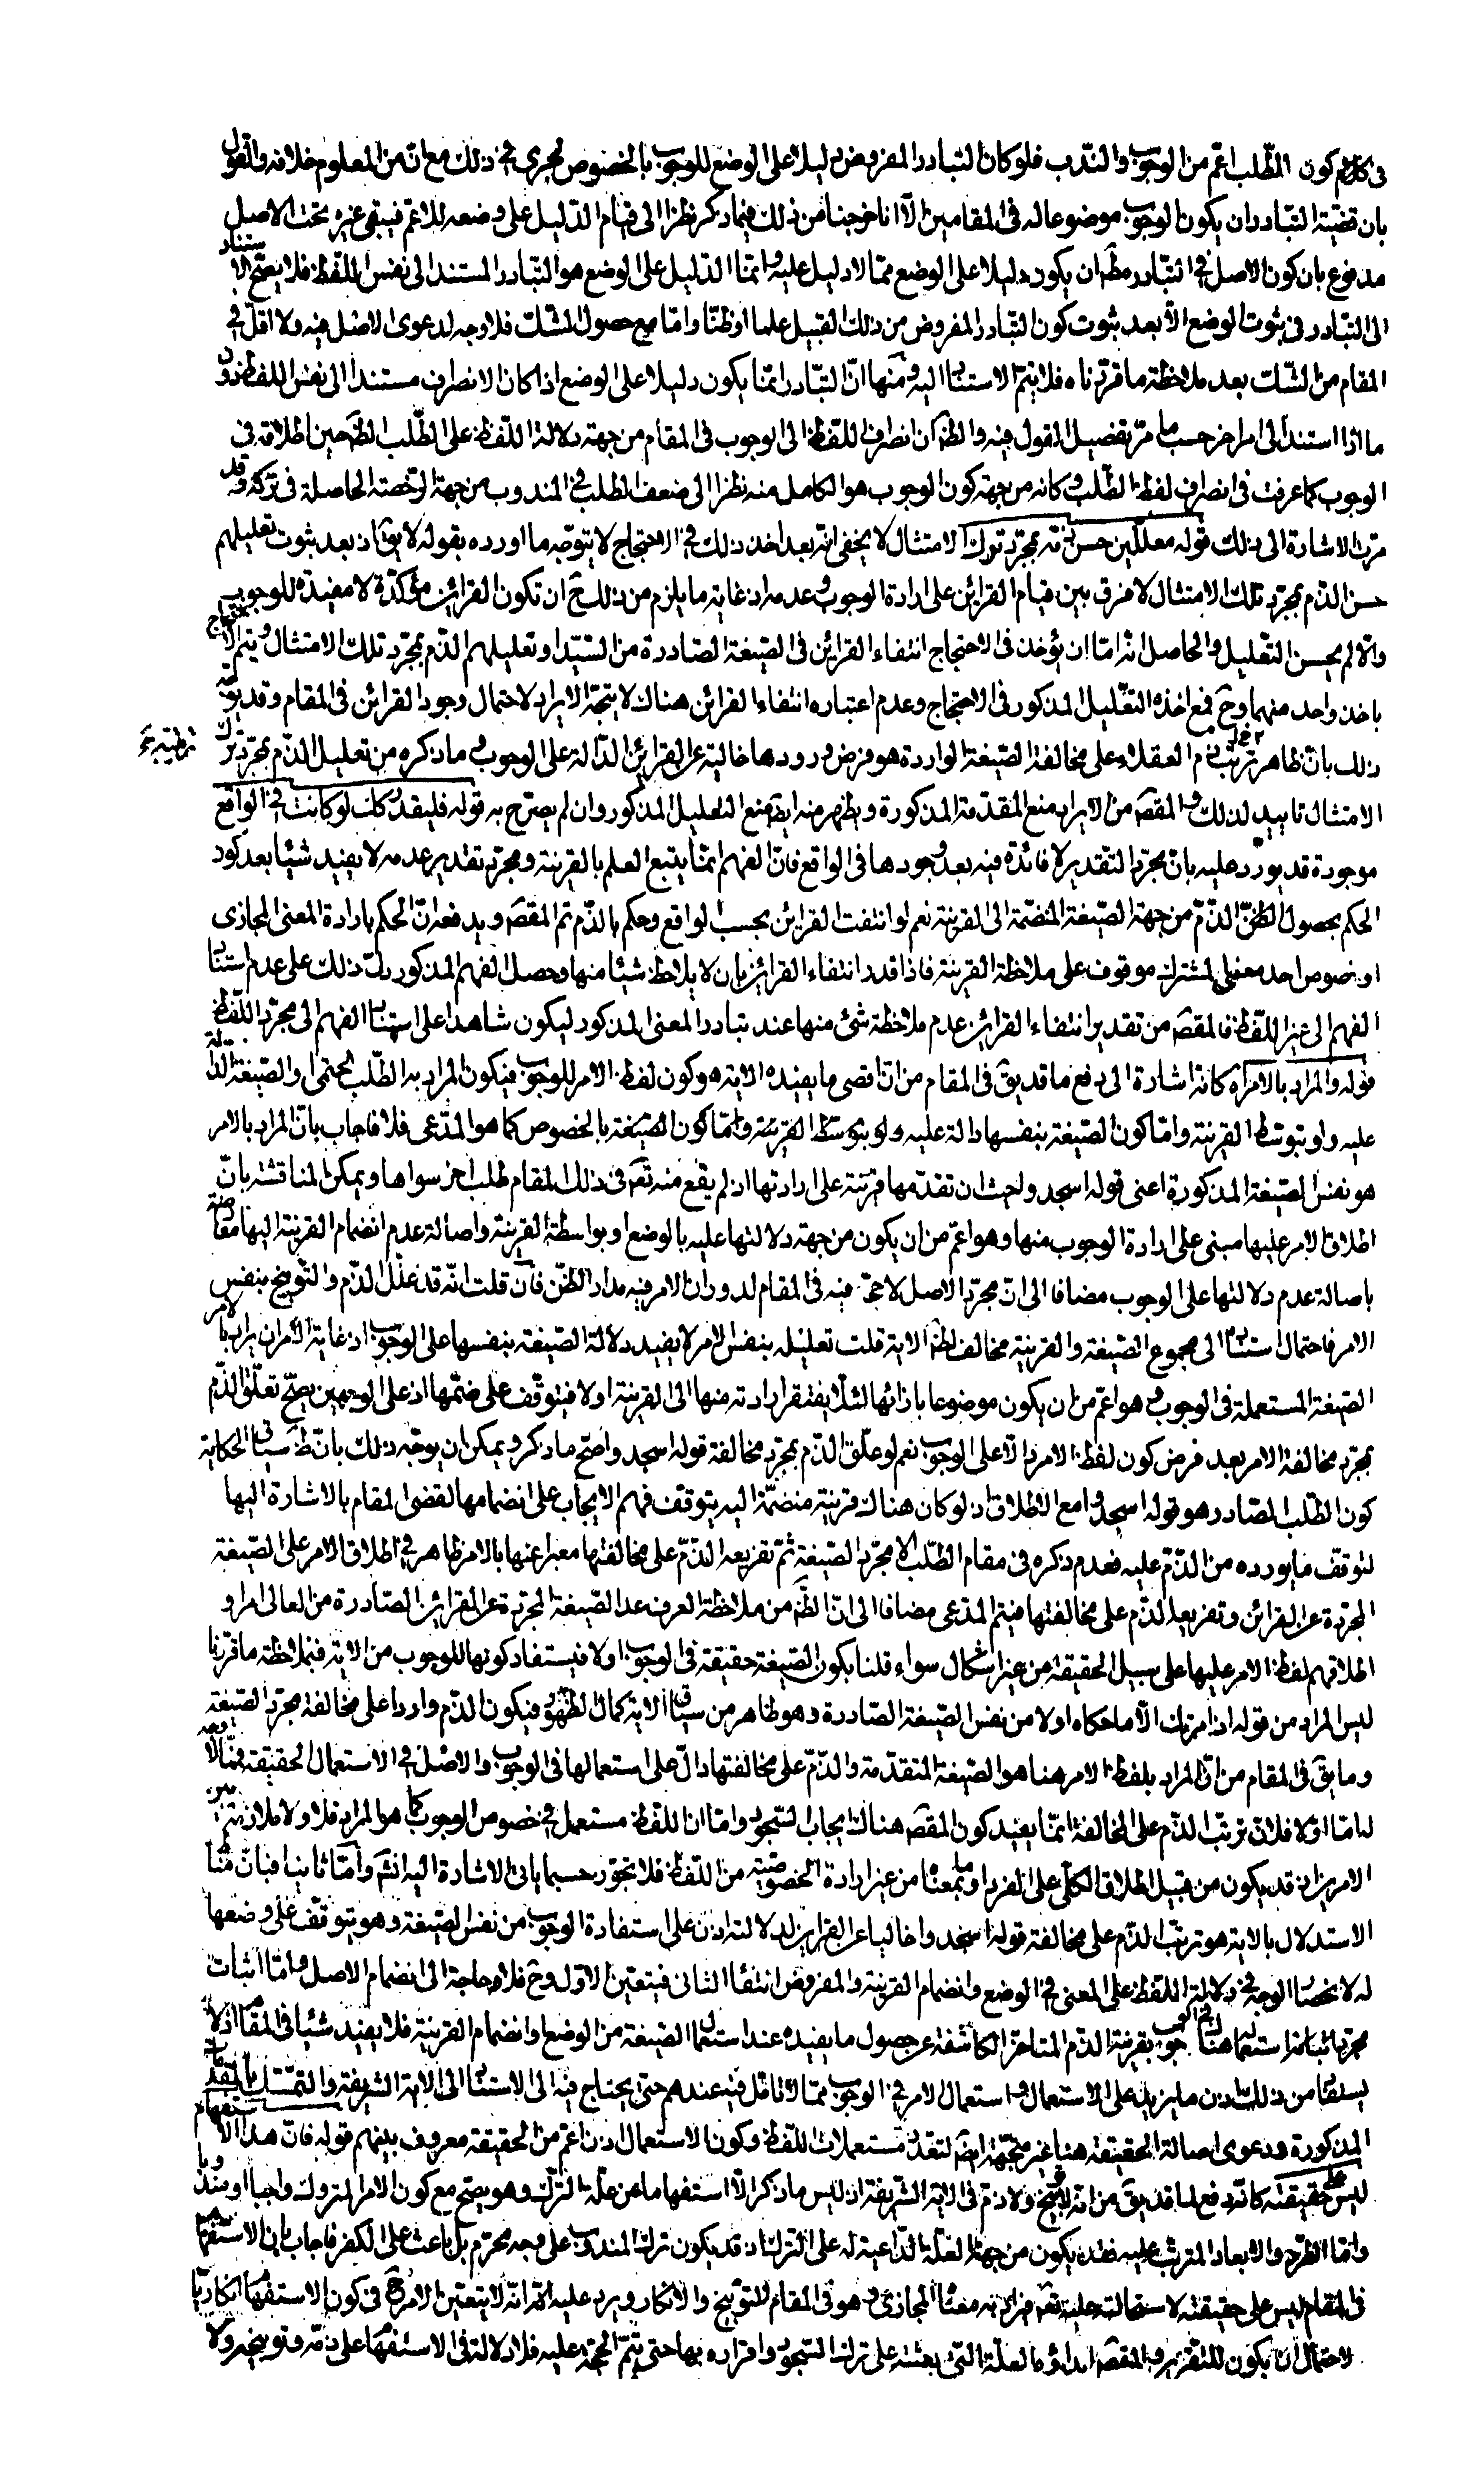 في كلامهم كون الطلب اعم من الوجوب والندب فلو كان التبادر المفروض دليلا على الوضع للوجوب بالخصوص لجرى في ذلك مع انه من المعلوم خلافه والقول
بان قضية التبادر ان يكون الوجوب موضوعا له في المقامين الا انا خرجنا من ذلك فيما ذكر نظرا الى قيام الدليل على وضعه للاعم فيبقى غيره تحت الاصل
مدفوع بان كون الاصل في التبادر مطم ان يكون دليلا على الوضع مما لا دليل عليه وانما الدليل على الوضع هو التبادر المستند الى نفس اللفظ فلا يصح الاستناد
الى التبادر في ثبوت الوضع الا بعد ثبوت كون التبادر المفروض من ذلك القبيل علما او ظنا واما مع حصول الشك فلا وجه لدعوى الاصل فيه ولا اقل في
المقام من الشك بعد ملاحظة ما قررناه فلا يتم الاستناد اليه ومنها ان التبادر انما يكون دليلا على الوضع اذا كان الانصراف مستندا الى نفس اللفظ دون
ما اذا استند الى امر اخر حسب ما مر تفصيل القول فيه والظ ان انصراف اللفظ الى الوجوب في المقام من جهة دلالة اللفظ على الطلب الظ حين اطلاقه في
الوجوب كما عرفت في انصراف لفظ الطلب وكانه من جهة كون الوجوب هو الكامل منه نظرا الى ضعف الطلب في المندوب من جهة الرخصة الحاصلة في تركه وقد
مرت الاشارة الى ذلك قوله معللين حسن ذمه بمجرد ترك الامتثال لا يخفى انه بعد اخذ ذلك في الاحتجاج لا يتوجه ما اورده بقوله لا يق اذ بعد ثبوت تعليلهم
حسن الذم بمجرد تلك الامتثال لا فرق بين قيام القرائن على ارادة الوجوب وعدمه اذ غاية ما يلزم من ذلك ح ان تكون القرائن مؤكدة لا مفيدة للوجوب
والا لم يحسن التعليل والحاصل انه اما ان يؤخذ في الاحتجاج انتفاء القرائن في الصيغة الصادرة من السيد او تعليلهم الذم بمجرد تلك الامتثال ويتم الاحتجاج
باخذ واحد منهما وح فمع اخذه التعليل المذكور في الاحتجاج وعدم اعتباره انتفاء القرائن هناك لا يتجه الايراد لاحتمال وجود القرائن في المقام وقد يوجه
ذلك بان ظاهر ترتب ذم العقلاء على مخالفة الصيغة الواردة هو فرض ورودها خالية عن القرائن الدالة على الوجوب وما ذكره من تعليل الذم بمجرد ترك
الامتثال تاييد لذلك والمقص من الايراد منع المقدمة المذكورة ويظهر منه ايض منع التعليل المذكور وان لم يصرح به قوله فليقدر كك لو كانت في الواقع
موجودة قد يورد عليه بان مجرد التقدير لا فائدة فيه بعد وجودها في الواقع فان الفهم انما يتبع العلم بالقرينة ومجرد تقدير عدمه لا يفيد شيئا بعد كون
الحكم بحصول الذم من جهة الصيغة المنضمة الى القرينة نعم لو انتفت القرائن بحسب الواقع وحكم بالذم تم المقص ويدفعه ان الحكم بارادة المعنى المجازي
او خصوص احد معنيي المشترك موقوف على ملاحظة القرينة فاذا قدر انتفاء القرائن بان لا يلاحظ شيئا منها وحصل الفهم المذكور دل ذلك على عدم استناد
الفهم الى غير اللفظ فالمقص من تقدير انتفاء القرائن عدم ملاحظة شئ منها عند تبادر المعنى المذكور ليكون شاهدا على استناد الفهم الى مجرد اللفظ
قوله والمراد بالامر اه كانه اشارة الى دفع ما قد يق في المقام من ان اقصى ما يفيده الاية هو كون لفظ الامر للوجوب فيكون المراد به الطلب الحتمى والصيغة الدالة
عليه ولو بتوسط القرينة واما كون الصيغة بنفسها دالة عليه ولو بتوسط القرينة واما كون الصيغة بالخصوص كما هو المدعى فلا فاجاب بان المراد بالامر
هو نفس الصيغة المذكورة اعني قوله اسجدوا حيث ان تقدمها قرينة على ارادتها اذ لم يقع منه تع في ذلك المقام طلب اخر سواها ويمكن المناقشة بان
اطلاق الامر عليها مبنى على ارادة الوجوب منها وهو اعم من ان يكون من جهة دلالتها عليه بالوضع او بواسطة القرينة واصالة عدم انضمام القرينة اليها معارضة
باصالة عدم دلالتها على الوجوب مضافا الى ان مجرد الاصل لا حجة فيه في المقام لدوران الامر فيه مدار الظن فان قلت انه قد علل الذم والتوبيخ بنفس
الامر فاحتمال استناده الى مجموع الصيغة والقرينة مخالف لظ الاية قلت تعليله بنفس الامر لا يفيد دلالة الصيغة بنفسها على الوجوب اذ غاية الامر ان يراد بالامر
الصيغة المستعملة في الوجوب وهو اعم من ان يكون موضوعا بازائها لئلا يفتقر ارادته منها الى القرينة او لا فيتوقف على ضمها اذ على الوجهين يصح تعلق الذم
بمجرد مخالفة الامر بعد فرض كون لفظ الامر دالا على الوجوب نعم لو علق الذم بمجرد مخالفة قوله اسجدوا صح ما ذكر ويمكن ان يوجه ذلك بان ظ سياق الحكاية
كون الطلب الصادر هو قوله اسجدوا مع الاطلاق اذ لو كان هناك قرينة منضمة اليه يتوقف فهم الايجاب على انضمامها لقضى المقام بالاشارة اليها
لتوقف ما يورده من الذم عليه فعدم ذكره في مقام الطلب الا مجرد الصيغة ثم تفريعه الذم على مخالفتها معبرا عنها بالامر ظاهر في اطلاق الامر على الصيغة
المجردة عن القرائن وتفريعه الذم على مخالفتها فيتم المدعى مضافا الى ان الظ من ملاحظة العرف عد الصيغة المجردة عن القرائن الصادرة من العالى امرا و
اطلاقهم لفظ الامر عليها على سبيل الحقيقة من غير اشكال سواء قلنا بكون الصيغة حقيقة في الوجوب او لا فيستفاد كونها للوجوب من الاية فبملاحظة ما قررنا
ليس المراد من قوله اذ امرتك الا ما حكاه اولا من نفس الصيغة الصادرة وهو ظاهر من سياق الاية كمال الظهور فيكون الذم واردا على مخالفة مجرد الصيغة
وما يق في المقام من ان المراد بلفظ الامر هنا هو الصيغة المتقدمة والذم على مخالفتها دال على استعمالها في الوجوب والاصل في الاستعمال الحقيقة فمما لا وجه
له اما اولا فلان ترتب الذم على المخالفة انما يفيد كون المقص هناك ايجاب السجود واما ان اللفظ مستعمل في خصوص الوجوب كما هو المراد فلا ولا ملازمة بين
الامرين اذ قد يكون من قبيل اطلاق الكلي على الفرد او ما بمعناه من غير ارادة الخصوصية من اللفظ فلا تجوز حسبما ياتي الاشارة اليه انش واما ثانيا فبان مبنى
الاستدلال بالاية هو ترتب الذم على مخالفة قوله اسجدوا خاليا عن القرائن لدلالته اذن على استفادة الوجوب من نفس الصيغة وهو يتوقف على وضعها
له لانحصار الوجه في دلالة اللفظ على المعنى في الوضع وانضمام القرينة والمفروض انتفاء الثاني فيتعين الاول وح فلا حاجة الى انضمام الاصل واما اثبات
مجرد اثبات استعمالها هنا في الوجوب بقرينة الذم المتاخر الكاشفة عن حصول ما يفيده عند استعمال الصيغة من الوضع او انضمام القرينة فلا يفيد شيئا في المقام اذ لا
يستفاد من ذلك اذن ما يزيد على الاستعمال واستعمال الامر في الوجوب مما لا تامل فيه عندهم حتى يحتاج فيه الى الاستناد الى الاية الشريفة والتمسك بالمقدمات
المذكورة ودعوى اصالة الحقيقة هنا غير متجهة ايض لتعدد مستعملات اللفظ وكون الاستعمال اذن اعم من الحقيقة معروف بينهم قوله فان هذا الاستفهام
ليس على حقيقته كانه دفع لما قد يق من انه لا توبيخ ولا ذم في الاية الشريفة اذ ليس ما ذكر الا استفهاما عن علة الترك وهو يصح مع كون الامر المتروك واجبا او مندوبا
واما الطرد والابعاد المترتب عليه فقد يكون من جهة العلة الداعية له على الترك اذ قد يكون ترك المندوب على وجه محرم بل باعث على الكفر فاجاب بان الاستفهام
في المقام ليس على حقيقته لاستحالته عليه تع فيراد به معناه المجازي وهو في المقام للتوبيخ والانكار ويرد عليه اه انه لا يتعين الامر ح في كون الاستفهام انكاريا
لاحتمال ان يكون للتقرير والمقص ابداؤه بالعلة التي بعثته على ترك السجود واقراره بها حتى يتم الحجة عليه فلا دلالة في الاستفهام على ذمه وتوبيخه ولا